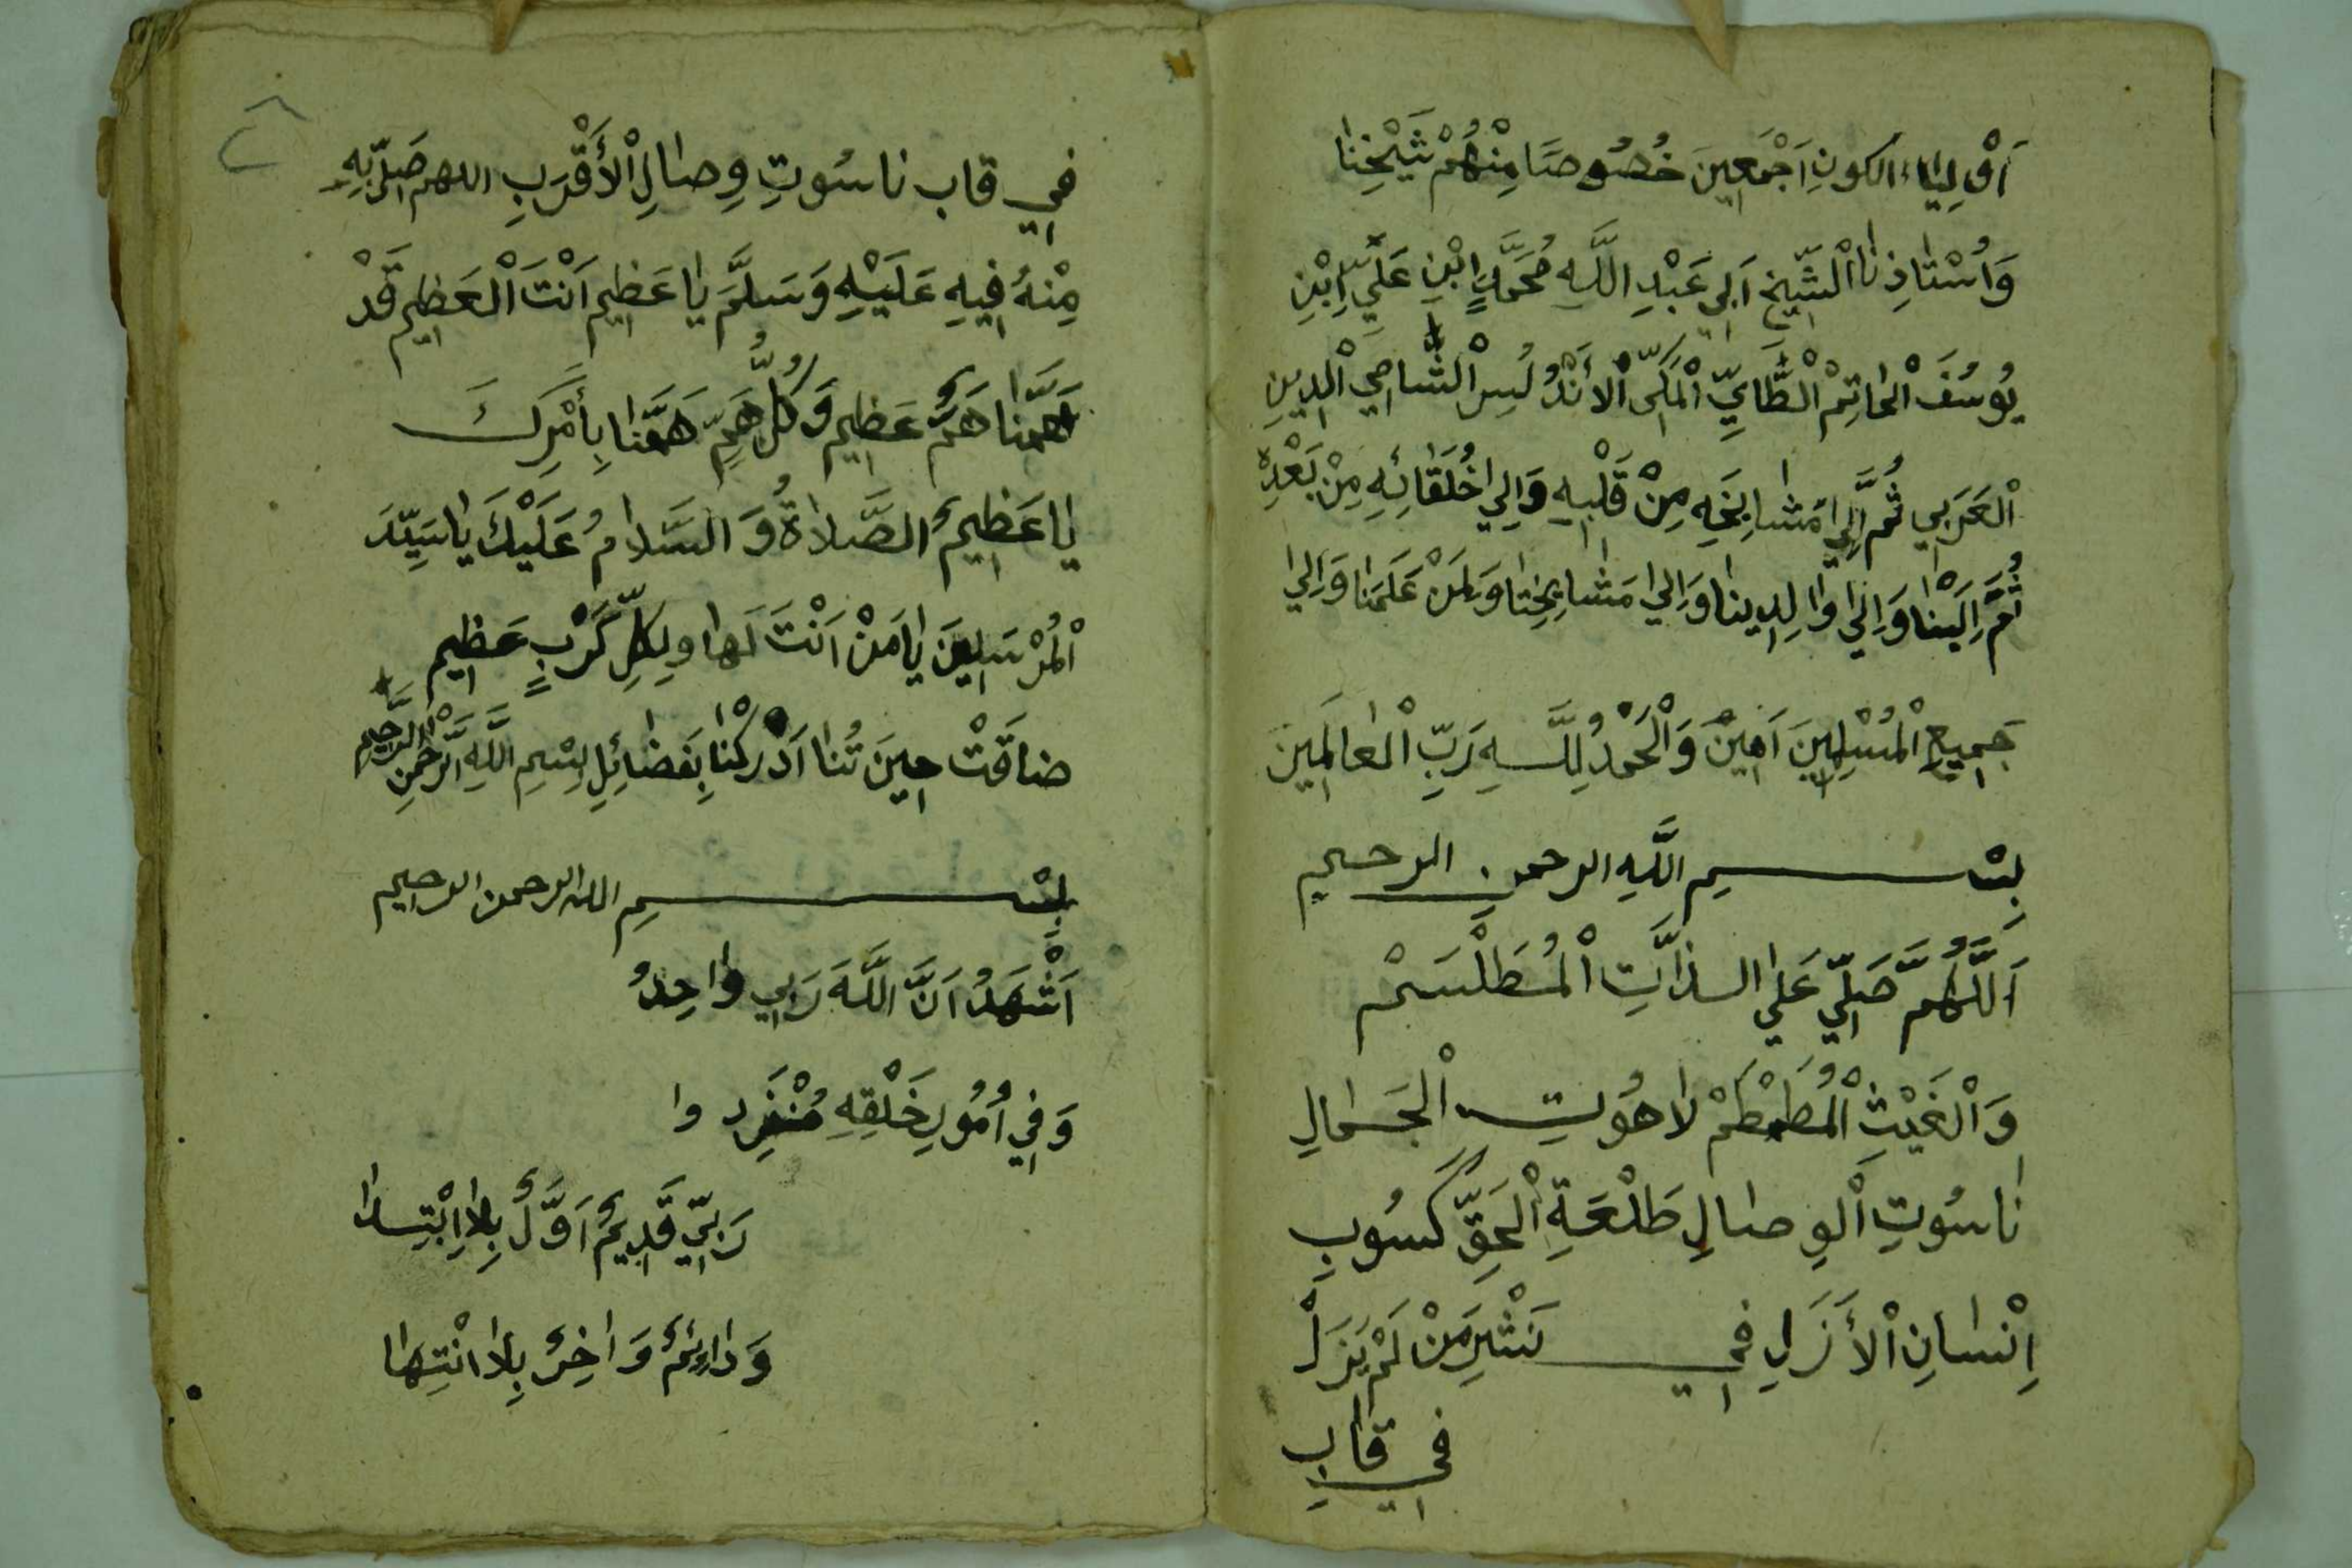 اَوْلِيَاءِ الكونِ اَجْمَعِينَ خُصُوصًا مِنْهُمْ شَيْخِنَا
وَاُسْتَاذِنَا الْشَّيْخِ اَبِي عَبْدِ اللَّهِ مُحَمَّدٍ اِبْنِ عَلِيِّ اِبْنِ
يُوسُفَ الْحَاتِمْ الْطَّايِّ الْمَكِّي الْأَنْدُلُسِ الْشَّامِي الْدِينِ
اْلعَرَبِي ثُمَّ اِلِي مَشَايِخِهِ مِنْ قَلْبِهِ وَاِلِي خُلَفَائِهِ مِنْ بَعْدِهْ
ثُمَّ اِلَيْنَا وَاِلَي وَالِدِينَا وَاِلَي مَشَايِخِنَا وَلِمَنْ عَلَمَنَا وَاِلَي
جَمِيعِ الْمُسْلِمِينَ اَمِيْنَ وَالْحَمْدُ لِلَّهِ رَبِّ الْعَالَمِينَ
بِسْمِ اللَّهِ الرحمن الرحيم
اَللَّهُمَّ صَلِّي عَلَي الذَّاتِ الْمُطَلْسَمْ
وَالْغَيْثِ الْمُطَمْطَمْ لَاهُوتِ الْجَمَالِ
نَاسُوتِ الْوِصَالِ طَلْعَةِ الْحَقِّ كَسُوبِ
اِنْسَانِ الْأَزَلِ فِي نَشْرِ مَنْ لَمْ يَزَلْ
فِي قَابِ
فِي قاب ناسُوتِ وِصَالِ الْأَقْرَبِ اللهم صَلِّ بِهِ
مِنْهُ فِيهِ عَلَيْهِ وَسَلَّمَ يَا عَظِيم اَنْتَ الْعَظِيم قَدْ
هَمَّنَا هَمٌّ عَظِيم وَكُلُّ هَمٍّ هَمَّنَا بِأَمْرِكَ
يَا عَظِيمُ الصَّلَاةُ وَ السَّلَامُ عَلَيْكَ يَا سَيِّدَ
الْمُرْسَلِينَ يَا مَنْ اَنْتَ لَهَا وَلِكُلِّ كَرْبٍ عَظِيم
ضَاقَتْ حِينَ تُنَا اَدْرِكْنَا بِفَضَائِلِ بِسْمِ اللَّهِ الرَّحْمَنِ الرَّحِيم
بِسْمِ الله الرحمن الرحيم
اَشْهَدُ اَنَّ اللَّهَ رَبِي وَاحِدُ
وَفِي اُمُورِ خَلْقِهِ مُنْفَرِد وا
رَبِّي قَدِيمٌ اَوَّلٌ بِلَا اِبْتِدَا
وَدَائِمٌ وَاخِرٌ بِلَا انْتِهَا